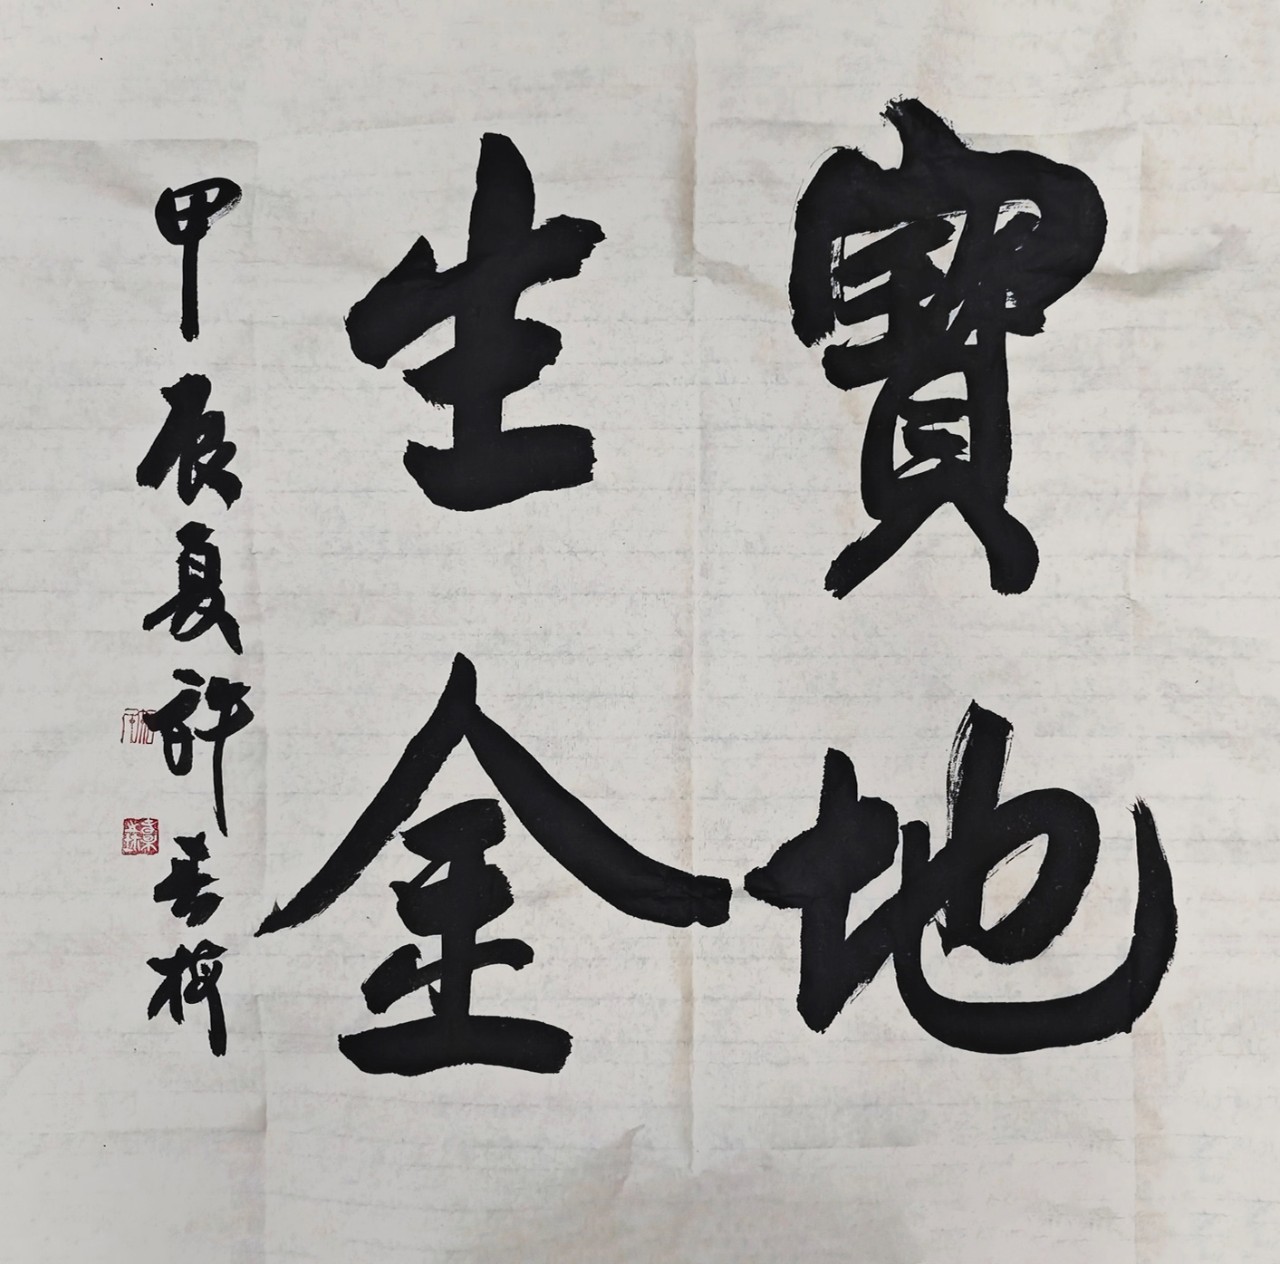 寶地
生金
甲辰夏許春梅